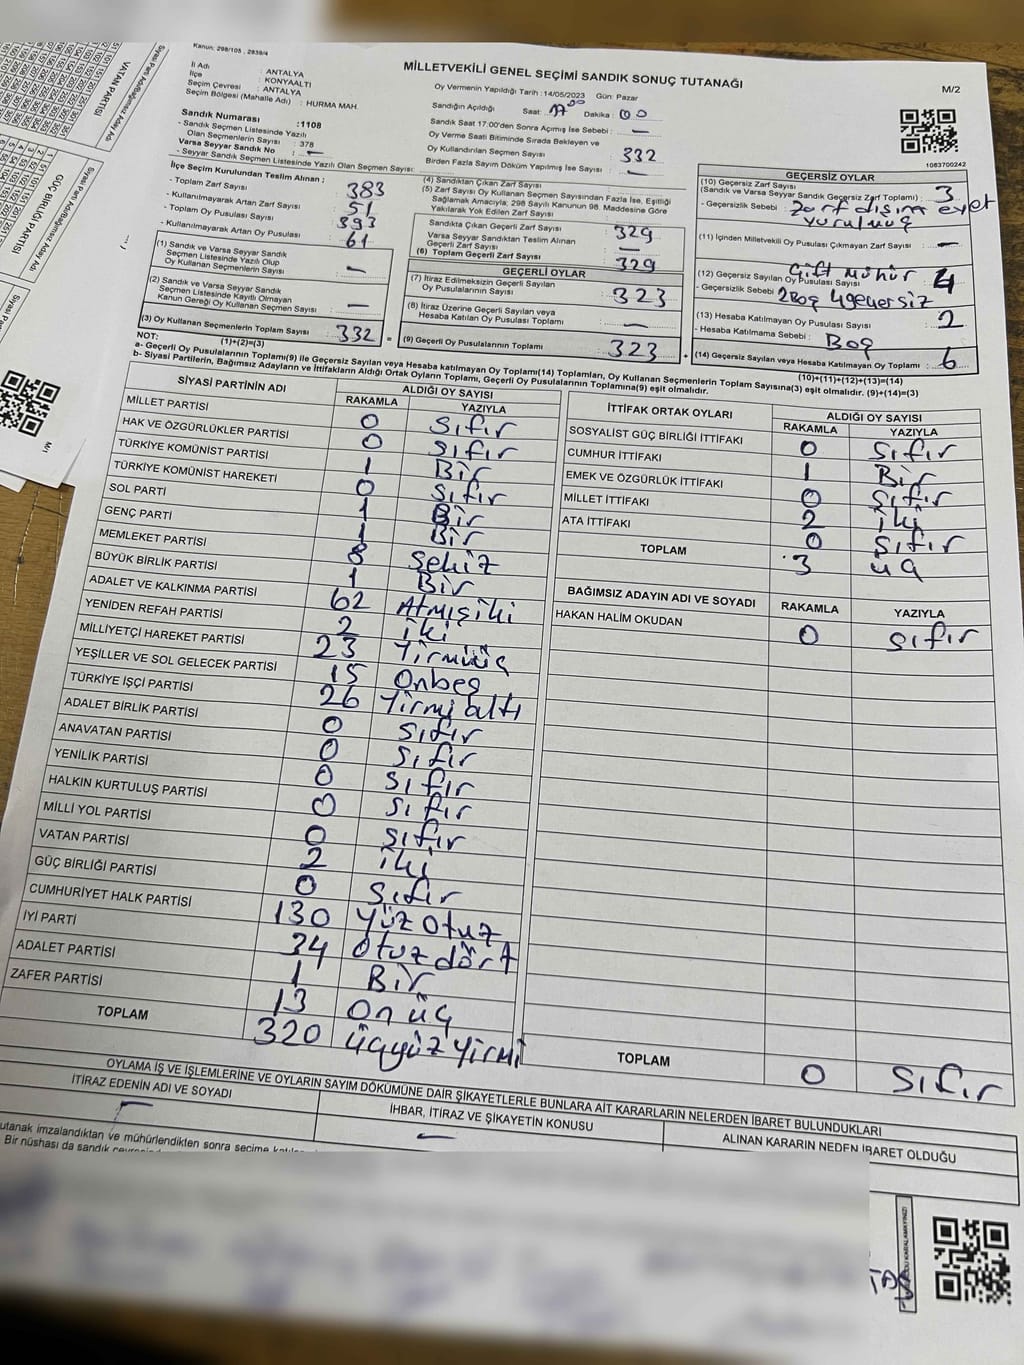 Kanun: 298/105 , 2839/4
MİLLETVEKİLİ GENEL SEÇİMİ SANDIK SONUÇ TUTANAĞI
M/2
İl Adı : ANTALYA
İlçe : KONYAALTI
Seçim Çevresi : ANTALYA
Seçim Bölgesi (Mahalle Adı) : HURMA MAH.
Oy Vermenin Yapıldığı Tarih : 14/05/2023 Gün: Pazar
Sandığın Açıldığı Saat: 17 00 Dakika : 00
Sandık Saat 17:00'den Sonra Açımış İse Sebebi : —
Oy Verme Saati Bitiminde Sırada Bekleyen ve
Oy Kullandırılan Seçmen Sayısı : 332
Birden Fazla Sayım Döküm Yapılmış İse Sayısı : —
1083700242
Sandık Numarası :1108
- Sandık Seçmen Listesinde Yazılı
Olan Seçmenlerin Sayısı : 378
Varsa Seyyar Sandık No : —
- Seyyar Sandık Seçmen Listesinde Yazılı Olan Seçmen Sayısı:
İlçe Seçim Kurulundan Teslim Alınan ;
- Toplam Zarf Sayısı : 383
- Kullanılmayarak Artan Zarf Sayısı : 51
- Toplam Oy Pusulası Sayısı : 393
- Kullanılmayarak Artan Oy Pusulası : 61
(1) Sandık ve Varsa Seyyar Sandık
Seçmen Listesinde Yazılı Olup
Oy Kullanan Seçmenlerin Sayısı : —
(2) Sandık ve Varsa Seyyar Sandık
Seçmen Listesinde Kayıtlı Olmayan
Kanun Gereği Oy Kullanan Seçmen Sayısı : —
(3) Oy Kullanan Seçmenlerin Toplam Sayısı : 332
(1)+(2)=(3)
(4) Sandıktan Çıkan Zarf Sayısı
(5) Zarf Sayısı Oy Kullanan Seçmen Sayısından Fazla İse, Eşitliği
Sağlamak Amacıyla; 298 Sayılı Kanunun 98. Maddesine Göre
Yakılarak Yok Edilen Zarf Sayısı
Sandıkta Çıkan Geçerli Zarf Sayısı : 329
Varsa Seyyar Sandıktan Teslim Alınan
Geçerli Zarf Sayısı : —
(6) Toplam Geçerli Zarf Sayısı : 329
GEÇERLİ OYLAR
(7) İtiraz Edilmeksizin Geçerli Sayılan
Oy Pusulalarının Sayısı : 323
(8) İtiraz Üzerine Geçerli Sayılan veya
Hesaba Katılan Oy Pusulası Toplamı : —
(9) Geçerli Oy Pusulalarının Toplamı : 323
GEÇERSİZ OYLAR
(10) Geçersiz Zarf Sayısı
(Sandık ve Varsa Seyyar Sandık Geçersiz Zarf Toplamı) : 3
- Geçersizlik Sebebi : Zarf dışına evet
vurulmuş
(11) İçinden Milletvekili Oy Pusulası Çıkmayan Zarf Sayısı : —
(12) Geçersiz Sayılan Oy Pusulası Sayısı Çift Mühür : 4
- Geçersizlik Sebebi : 2Boş 4geçersiz
(13) Hesaba Katılmayan Oy Pusulası Sayısı : 2
- Hesaba Katılmama Sebebi : Boş
(14) Geçersiz Sayılan veya Hesaba Katılmayan Oy Toplamı : 6
(10)+(11)+(12)+(13)=(14)
NOT:
a- Geçerli Oy Pusulalarının Toplamı(9) ile Geçersiz Sayılan veya Hesaba katılmayan Oy Toplamı(14) Toplamları, Oy Kullanan Seçmenlerin Toplam Sayısına(3) eşit olmalıdır. (9)+(14)=(3)
b- Siyasi Partilerin, Bağımsız Adayların ve İttifakların Aldığı Ortak Oyların Toplamı, Geçerli Oy Pusulalarının Toplamına(9) eşit olmalıdır.
SİYASİ PARTİNİN ADI ALDIĞI OY SAYISI
RAKAMLA YAZIYLA
MİLLET PARTİSİ 0 Sıfır
HAK VE ÖZGÜRLÜKLER PARTİSİ 0 Sıfır
TÜRKİYE KOMÜNİST PARTİSİ 1 Bir
TÜRKİYE KOMÜNİST HAREKETİ 0 Sıfır
SOL PARTİ 1 Bir
GENÇ PARTİ 1 Bir
MEMLEKET PARTİSİ 8 Sekiz
BÜYÜK BİRLİK PARTİSİ 1 Bir
ADALET VE KALKINMA PARTİSİ 62 Atmışiki
YENİDEN REFAH PARTİSİ 2 iki
MİLLİYETÇİ HAREKET PARTİSİ 23 Yirmiüç
YEŞİLLER VE SOL GELECEK PARTİSİ 15 Onbeş
TÜRKİYE İŞÇİ PARTİSİ 26 Yirmi altı
ADALET BİRLİK PARTİSİ 0 Sıfır
ANAVATAN PARTİSİ 0 Sıfır
YENİLİK PARTİSİ 0 Sıfır
HALKIN KURTULUŞ PARTİSİ 0 Sıfır
MİLLİ YOL PARTİSİ 0 Sıfır
VATAN PARTİSİ 2 iki
GÜÇ BİRLİĞİ PARTİSİ 0 Sıfır
CUMHURİYET HALK PARTİSİ 130 Yüz Otuz
İYİ PARTİ 34 Otuz dört
ADALET PARTİSİ 1 Bir
ZAFER PARTİSİ 13 On üç
TOPLAM 320 Üçyüz Yirmi
İTTİFAK ORTAK OYLARI ALDIĞI OY SAYISI
RAKAMLA YAZIYLA
SOSYALİST GÜÇ BİRLİĞİ İTTİFAKI 0 Sıfır
CUMHUR İTTİFAKI 1 Bir
EMEK VE ÖZGÜRLÜK İTTİFAKI 0 Sıfır
MİLLET İTTİFAKI 2 iki
ATA İTTİFAKI 0 Sıfır
TOPLAM 3 üç
BAĞIMSIZ ADAYIN ADI VE SOYADI RAKAMLA YAZIYLA
HAKAN HALİM OKUDAN 0 Sıfır
TOPLAM 0 Sıfır
OYLAMA İŞ VE İŞLEMLERİNE VE OYLARIN SAYIM DÖKÜMÜNE DAİR ŞİKAYETLERLE BUNLARA AİT KARARLARIN NELERDEN İBARET BULUNDUKLARI
İTİRAZ EDENİN ADI VE SOYADI
İHBAR, İTİRAZ VE ŞİKAYETİN KONUSU
ALINAN KARARIN NEDEN İBARET OLDUĞU
utanak imzalandıktan ve mühürlendikten sonra seçime
Bir nüshası da sandık
VATAN PARTİSİ
Siyasi Parti Adı/Bağımsız Aday Adı
GÜÇ BİRLİĞİ PARTİSİ
Siyasi Parti Adı/Bağımsız Aday Adı
M/1